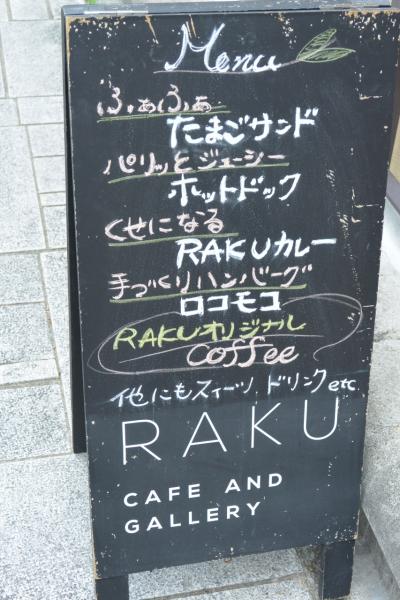 Menu
ふぁふぁ
たまごサンド
パリッとジューシー
ホットドック
くせになる
RAKUカレー
手づくりハンバーグ
ロコモコ
RAKUオリジナル
Coffee
他にもスィーツ、ドリンクetc
RAKU
CAFE AND
GALLERY